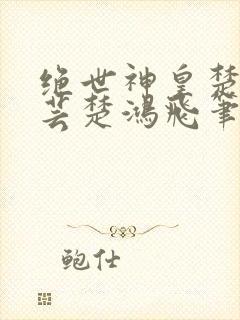 绝世神皇楚
芸楚鸿飞笔
鲍仕